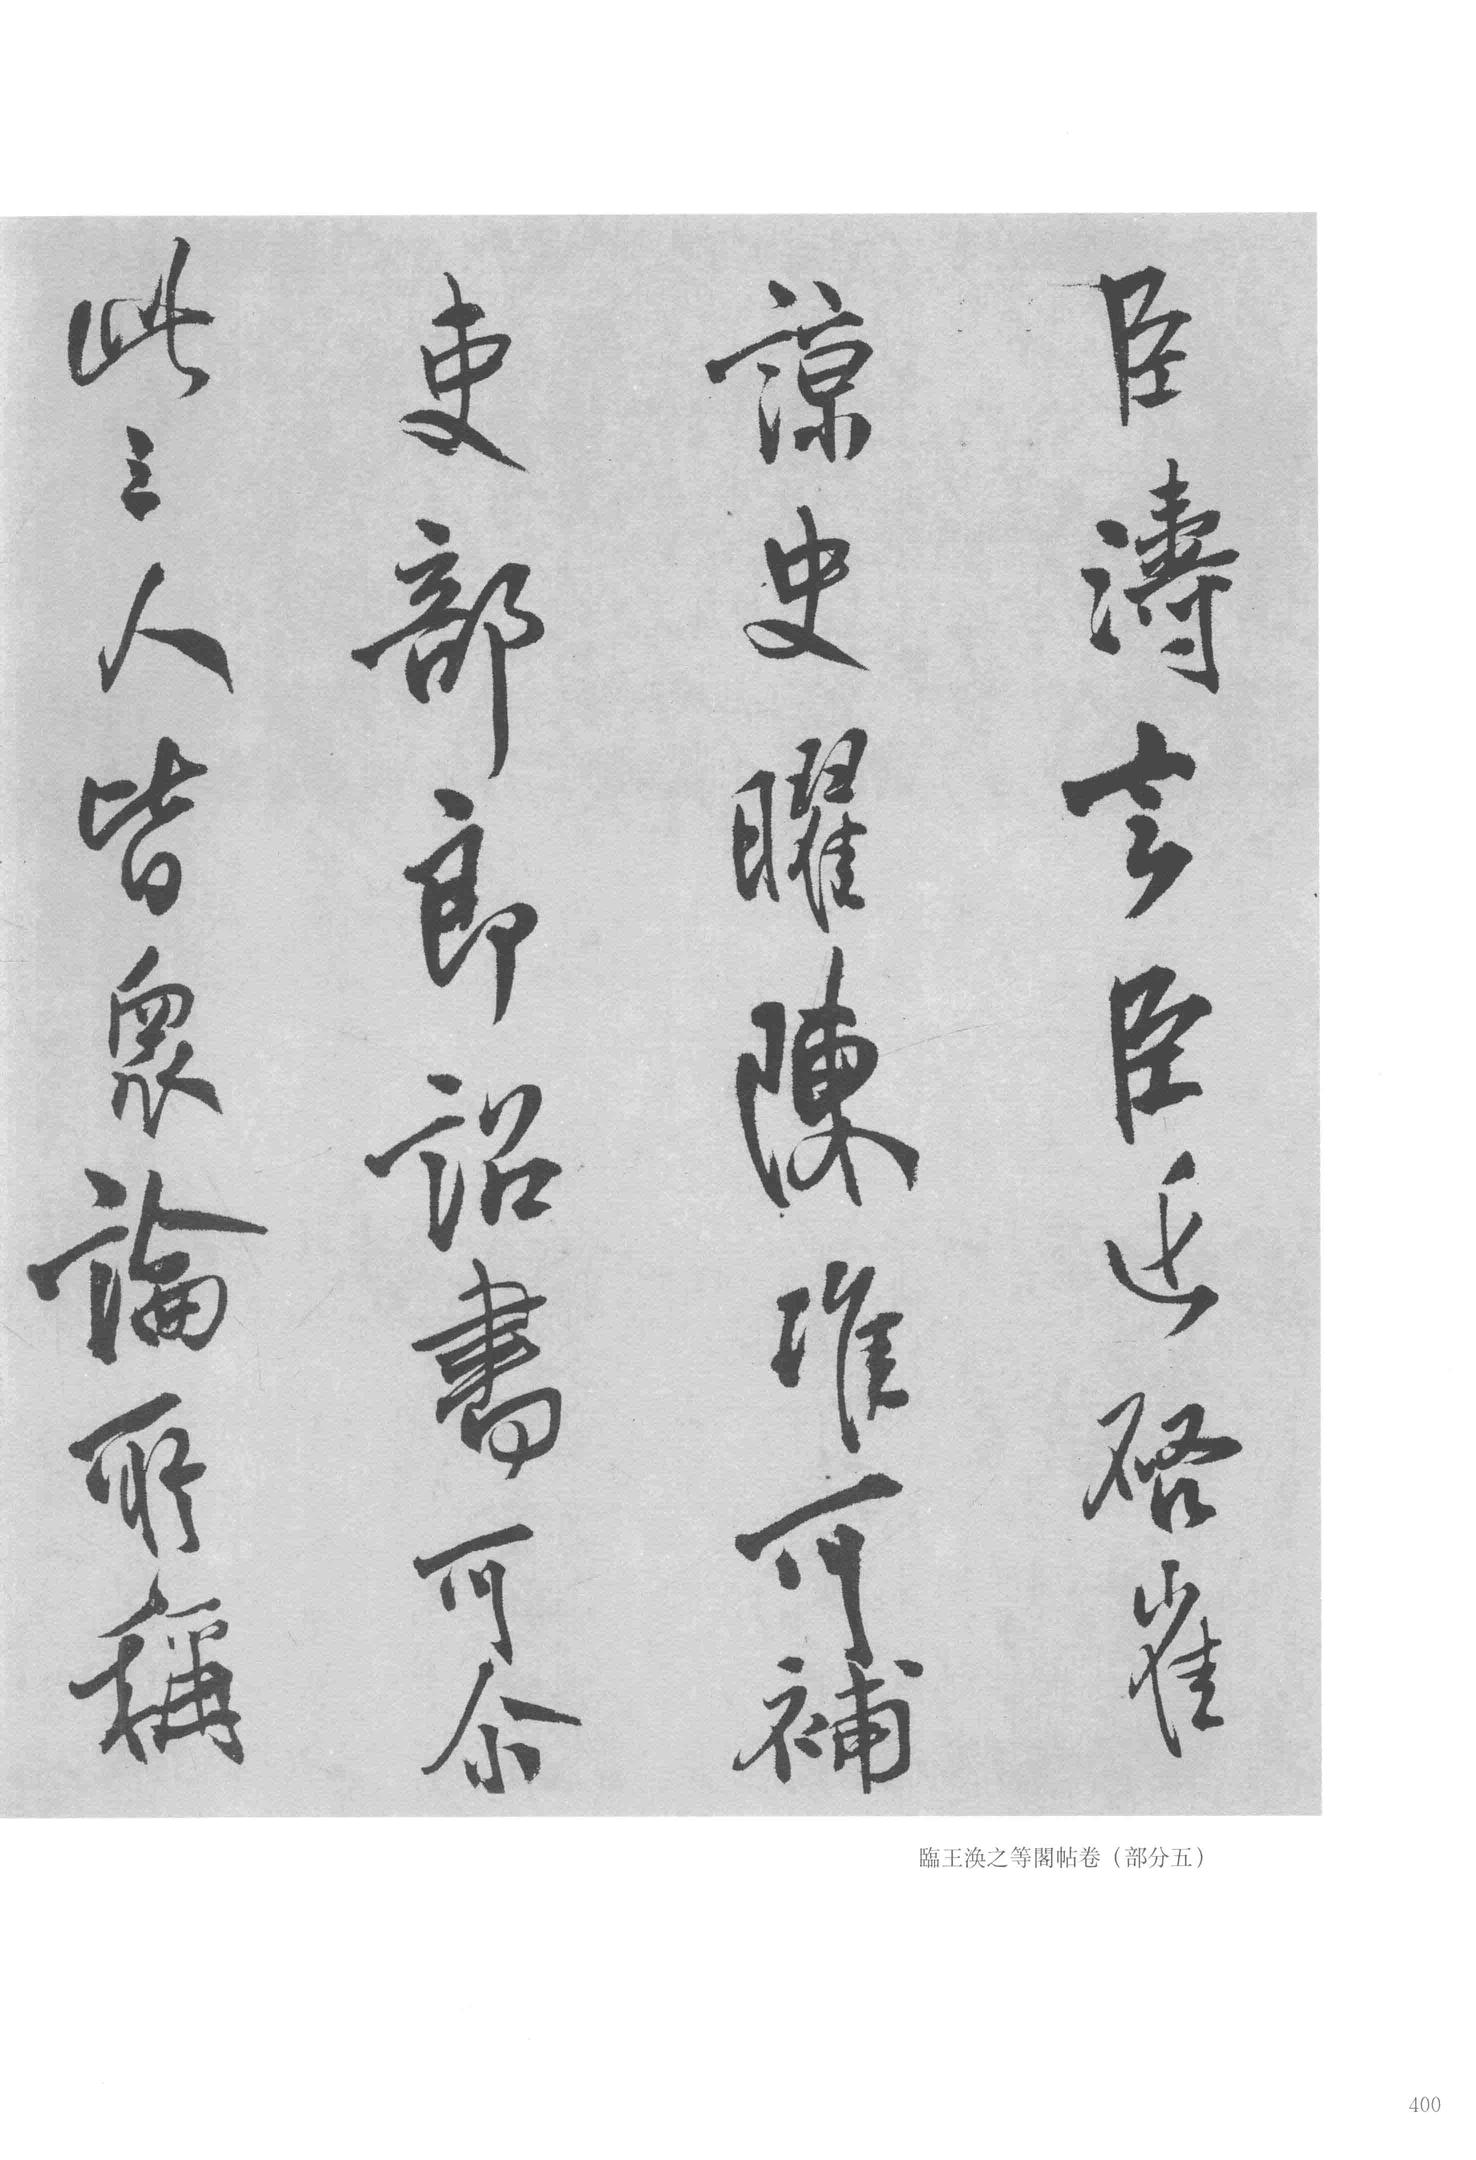 臣濤言臣近啓崔
諒史曜陳准可補
吏部郎詔書可尒
此三人皆衆論所稱
臨王涣之等閣帖卷（部分五）
400